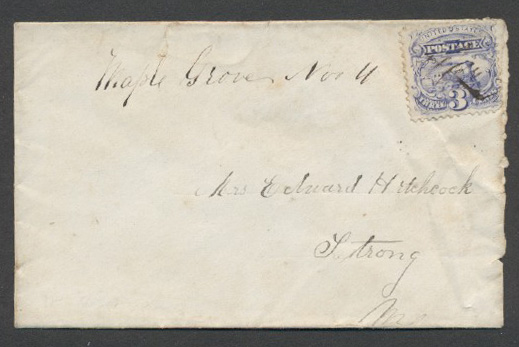 UNITED STATES
POSTAGE
Maple Grove Nov 4
THREE 3 CENTS
Mrs Edward Hitchcock
Strong
Me